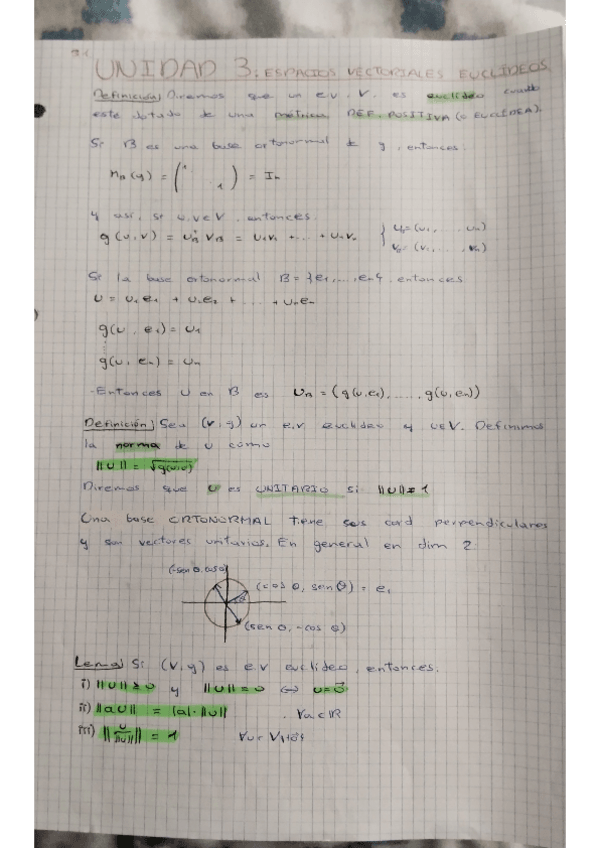 UNIDAD 3: ESPACIOS VECTORIALES EUCLÍDEOS
Definición; Diremos que un e.v. V. es euclídeo cuando
este dotado de una métrica DEF. POSITIVA (o EUCLÍDEA).
Si B es una base ortonormal de g, entonces:
M_B(g) = (1 ... 1) = I_n
y así, si u,v∈V, entonces.
g(u,v) = u_B^t v_B = u₁v₁ + ... + u_n v_n { u_B=(u₁, ..., u_n)
v_B=(v₁, ..., v_n)
Si la base ortonormal B = {e₁, ..., e_n}, entonces
u = u₁e₁ + u₂e₂ + ... + u_n e_n
g(u, e₁) = u₁
g(u, e_n) = u_n
-Entonces u en B es u_B = (g(u,e₁), ....., g(u,e_n))
Definición; Sea (V,g) un e.v euclídeo y u∈V. Definimos
la norma de u como
||u|| = √g(u,u)
Diremos que u es UNITARIO si ||u|| = 1
Una base ORTONORMAL tiene sus cord perpendiculares
y son vectores unitarios. En general en dim 2.
(-sen θ, cos θ)
(cos θ, sen θ) = e₁
(sen θ, -cos θ)
Lema; Si (V,g) es e.v euclídeo, entonces.
i) ||u|| ≥ 0 y ||u|| = 0 ⇔ u = 0⃗
ii) ||a u|| = |a|·||u|| . ∀a∈R
iii) ||u/||u|| || = 1 ∀u∈V\{0}